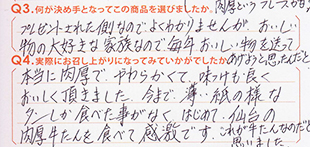 Q3.何が決め手となってこの商品を選びましたか。肉厚というフレーズかな?
プレゼントされた側なのでよくわかりませんが、おいしい
物の大好きな家族なので毎年おいしい物を送って
あげようと思ったんだと
Q4.実際にお召し上がりになってみていかがでしたか
本当に肉厚で、やわらかくて、味つけも良く
おいしく頂きました。今まで薄い紙の様な
タンしか食べた事がなく はじめて、仙台の
肉厚牛たんを食べて感激です。これが牛たんなのだと
思いました。